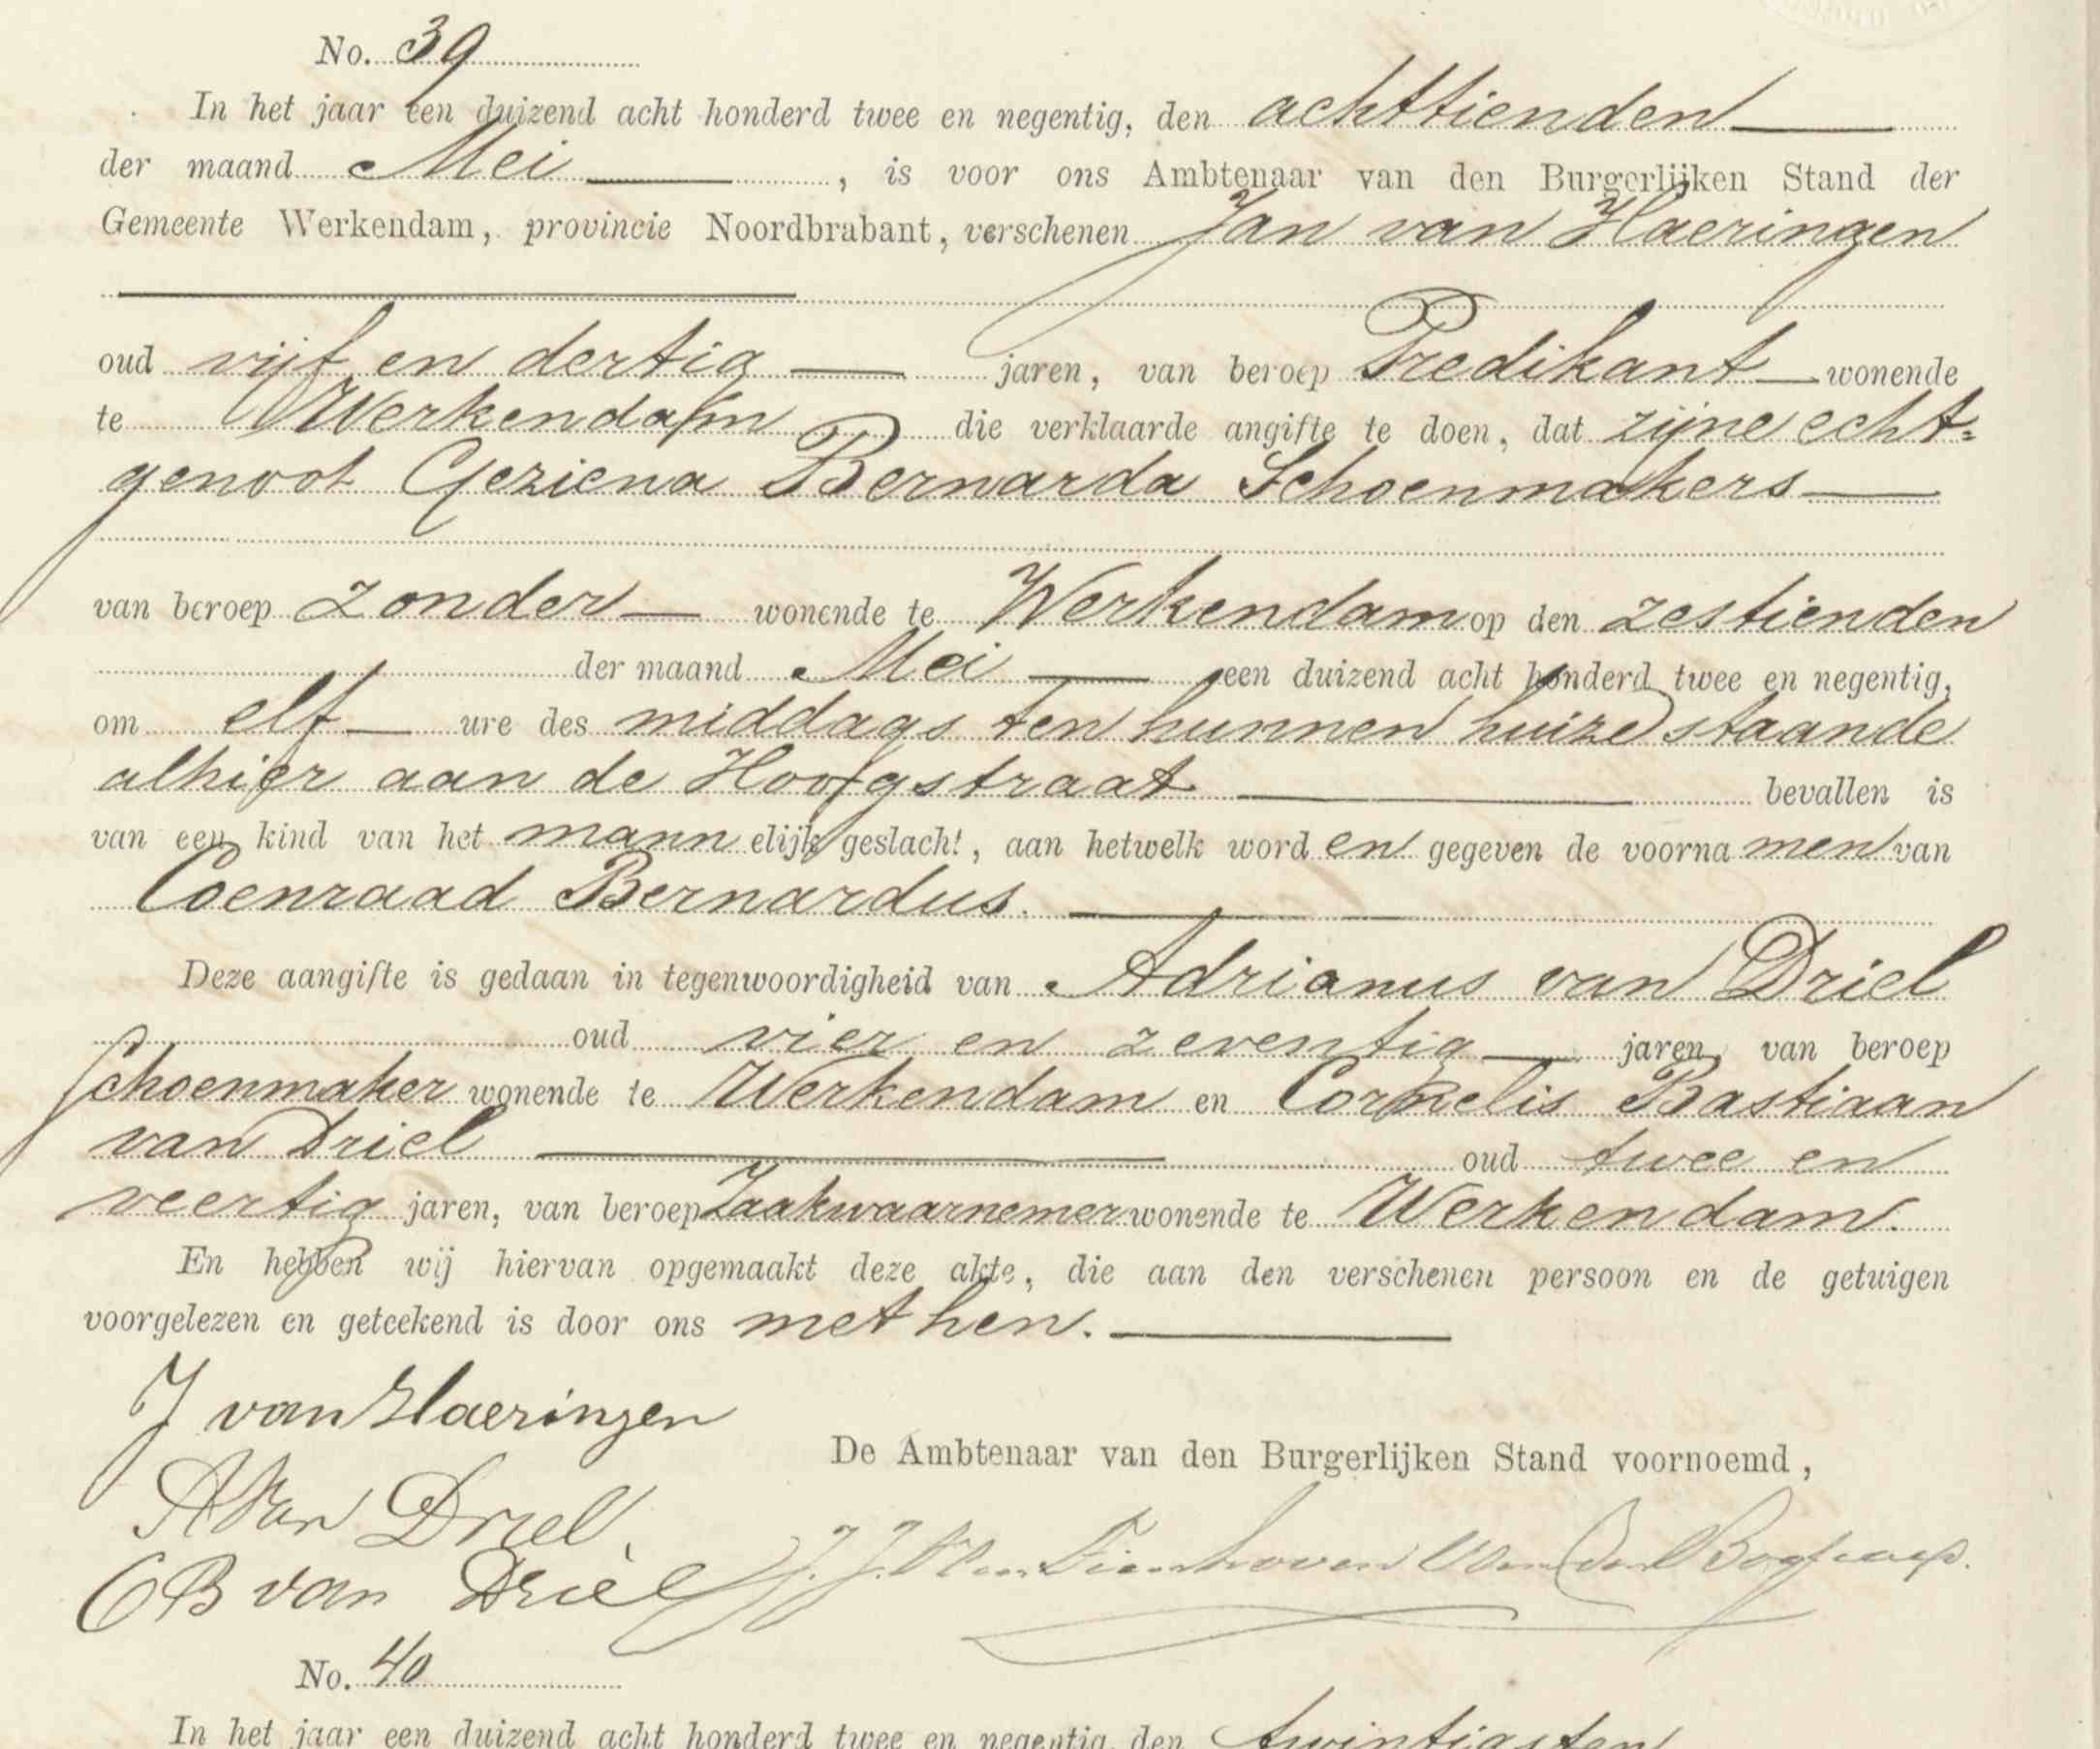 No. 39
In het jaar een duizend acht honderd twee en negentig, den achttienden
der maand Mei, is voor ons Ambtenaar van den Burgerlijken Stand der
Gemeente Werkendam, provincie Noordbrabant, verschenen Jan van Haeringen
oud vijf en dertig jaren, van beroep Predikant wonende
te Werkendam die verklaarde angifte te doen, dat zijne echt=
genoot Geziena Bernarda Schoenmakers
van beroep zonder wonende te Werkendam op den zestienden
der maand Mei een duizend acht honderd twee en negentig,
om elf ure des middags ten hunnen huize staande
alhier aan de Hoogstraat bevallen is
van een kind van het mannelijk geslacht, aan hetwelk worden gegeven de voornamen van
Coenraad Bernardus.
Deze aangifte is gedaan in tegenwoordigheid van Adrianus van Driel
oud vier en zeventig jaren, van beroep
Schoenmaker wonende te Werkendam en Cornelis Bastiaan
van Driel oud twee en
veertig jaren, van beroep Zaakwaarnemer wonende te Werkendam.
En hebben wij hiervan opgemaakt deze akte, die aan den verschenen persoon en de getuigen
voorgelezen en geteekend is door ons met hen.
J van Haeringen
De Ambtenaar van den Burgerlijken Stand voornoemd,
A Van Driel
CB van Driel J. J. Van Tienhoven Van den Bogaard.
No. 40
In het jaar een duizend acht honderd twee en negentig, den twintigsten